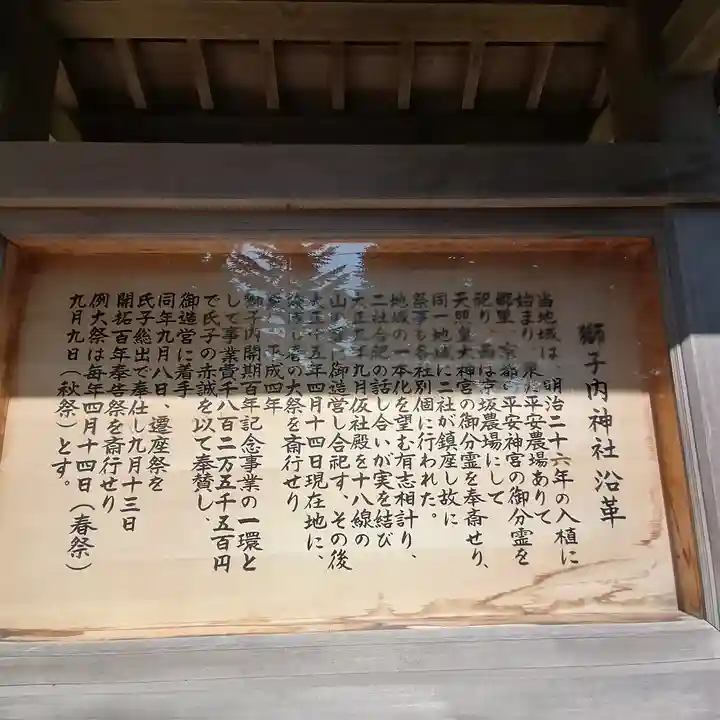 獅子内神社 沿革
当地域は、明治二十六年の入植に
始まり、東に平安農場ありて
郷里、京都の平安神宮の御分霊を
祀り、西は京坂農場にして
天照皇大神宮の御分霊を奉斎せり、
同一地域に二社が鎮座し故に
祭事も各社別個に行われた。
地域の一本化を望む有志相計り、
二社合祀の話し合いが実を結び
大正 年九月仮社殿を十八線の
山の に御造営し合祀す、その後
大正十五年四月十四日現在地に、
し春の大祭を斎行せり
平成四年
獅子内開期百年記念事業の一環と
して事業費千八百二万五千五百円
で氏子の赤誠を以て奉賛し、
御造営に着手
同年九月八日、遷座祭を
氏子総出で奉仕し九月十三日
開拓百年奉告祭を斎行せり
例大祭は毎年四月十四日（春祭）
九月九日（秋祭）とす。